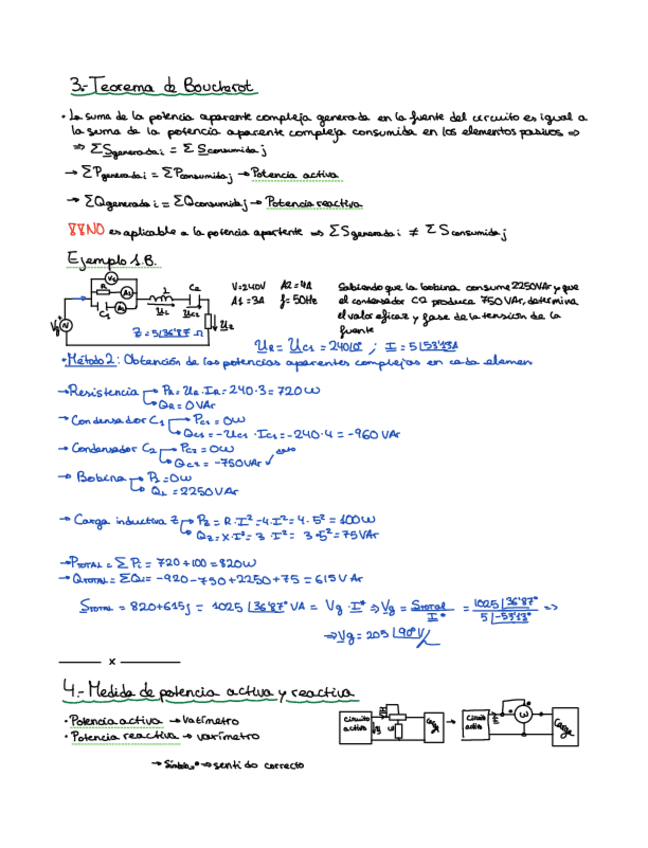 3.- Teorema de Boucherot
• La suma de la potencia aparente compleja generada en la fuente del circuito es igual a
la suma de la potencia aparente compleja consumida en los elementos pasivos ⇒
⇒ ΣSgenerada i = ΣSconsumida j
→ ΣPgenerada i = ΣPconsumida j → Potencia activa
→ ΣQgenerada i = ΣQconsumida j → Potencia reactiva
NO es aplicable a la potencia apartente ⇒ ΣSgenerada i ≠ ΣSconsumida j
Ejemplo 1.B.
V=240V A2=4A
A1=3A f=50Hz
Sabiendo que la bobina consume 2250VAr y que
el condensador C2 produce 750VAr, determina
el valor eficaz y fase de la tensión de la
fuente
R A1 C1 A2 L C2
UL UC2 Uz
Vg
Z=5|36'87° Ω
UR = UC1 = 240|0° ; I = 5|53'13A
• Método 2: Obtención de las potencias aparentes complejas en cada elemen
→ Resistencia → PR = UR·IR = 240·3 = 720W
→ QR = 0VAr
→ Condensador C1 → PC1 = 0W
→ QC1 = -UC1·IC1 = -240·4 = -960VAr
→ Condensador C2 → PC2 = 0W
→ QC2 = -750VAr
→ Bobina → PL = 0W
→ QL = 2250VAr
→ Carga inductiva Z → PZ = R·I² = 4·I² = 4·5² = 100W
→ QZ = X·I² = 3·I² = 3·5² = 75VAr
→ PTOTAL = ΣPi = 720+100 = 820W
→ QTOTAL = ΣQi = -920-750+2250+75 = 615VAr
STOTAL = 820+615j = 1025|36'87° VA = Vg·I* ⇒ Vg = STOTAL / I* = 1025|36'87° / 5|-53'13° ⇒
⇒ Vg = 205|90° V
x
4.- Medida de potencia activa y reactiva
• Potencia activa → vatímetro
• Potencia reactiva → varímetro
circuito activo Carga → circuito activo W Carga
→ sentido correcto